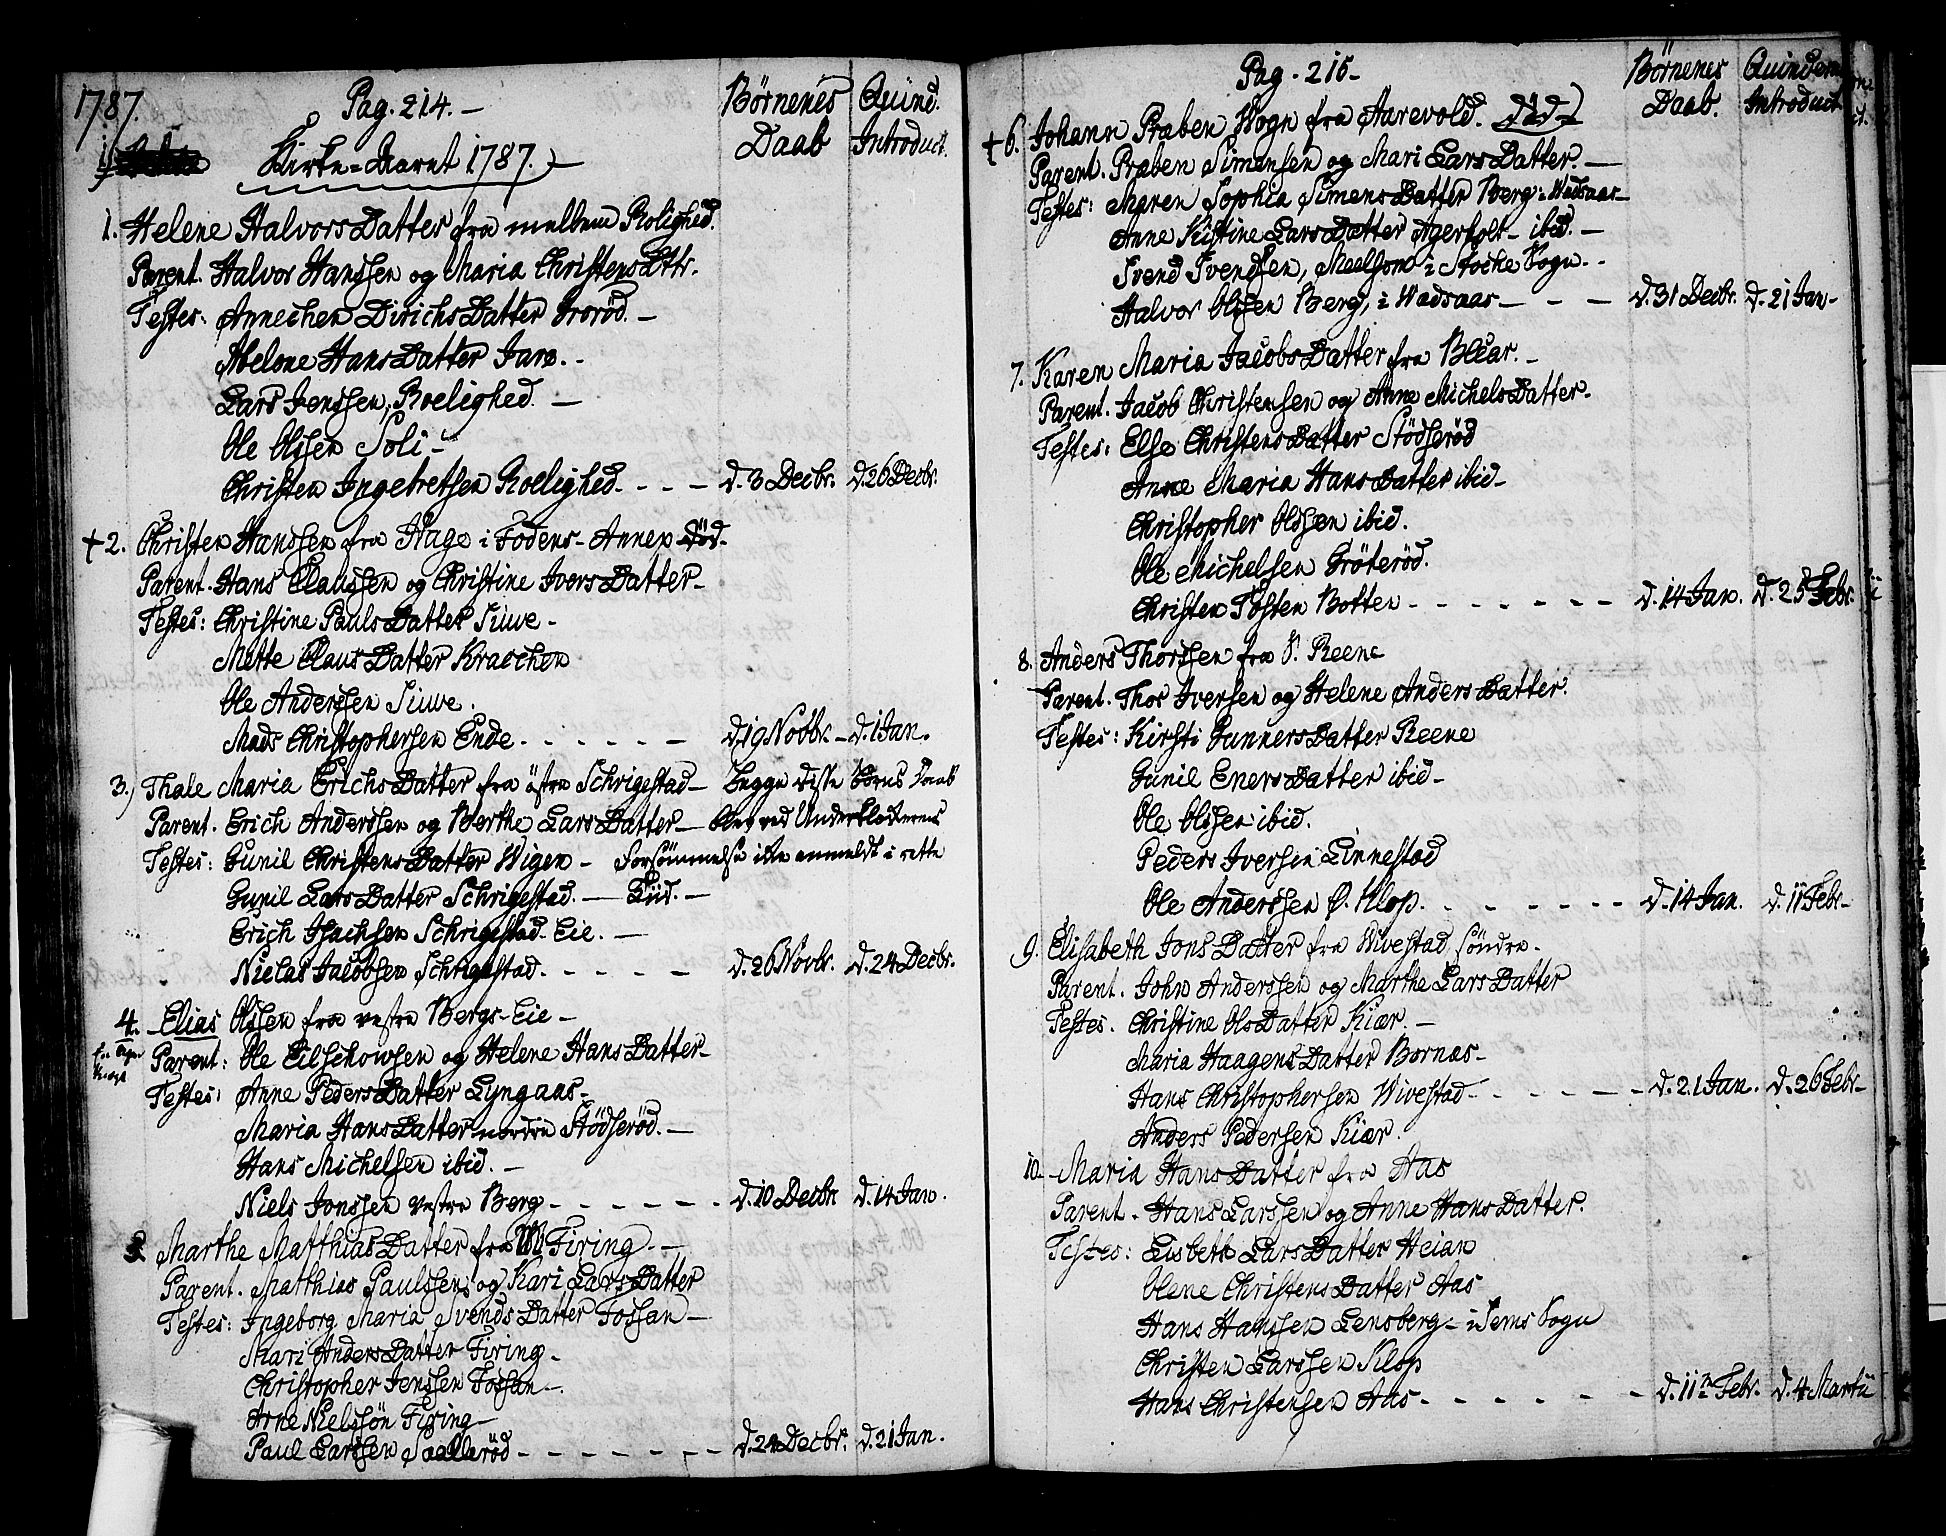 1787.
Pag. 214. —
Börnenes Daab
Quind. Introduct.
Kirke-Aaret 1787.
1. Helene HalvorsDatter fra mellem Rolighed.
Parent. Halvor Hanssen og Maria ChristensDttr.
Testes: Annechen DirichsDatter Grorød. —
Abelone HansDatter Jare. -
Lars Jenssen, Roelighed. —
Ole Olssen Soli —
Christen Ingebretsen Roelighed. - - - d. 3 Decbr. d. 26 Decbr.
+ 2. Christen Hanssen fra Hage i Fodens-Annex Död.
Parent. Hans Claussen og Christine IversDatter —
Testes: Christine PaulsDatter Siuve —
Mette ClausDatter Kraechen
Ole Anderssen Siuve.
Mads Christophersen Ende. - - - - - - d. 19 Novbr. — d. 1 Jan.
3.) Thale Maria ErichsDatter fra östre Schrigestad — begge disse Börns Daab
Parent. Erich Anderssen og Berthe LarsDatter — blev ved Underklokkerens
Testes: Gunil ChristensDatter Wigen — forsömmelse ikke anmeldt i rette
Gunil LarsDatter Schrigestad. — Tiid. —
Erich Isachsen Schrigestad-Eie. —
Niclas Jacobsen Schrigestad. - - - - - d. 26 Novbr. d. 24 Decbr.
4. Elias Olssen fra vestre Bergs-Eie —
Parent: Ole Eilschowsen og Helene HansDatter —
Testes: Anne PedersDatter Lyngaas —
Maria HansDatter nordre Stödseröd. —
Hans Michelsen ibid. —
Niels Jonssen vestre Berg - - - - - - d. 10 Decbr d. 14 Jan.
5. Marthe MatthiasDatter fra W Firing. —
Parent. Matthias Paulssen og Kari LarsDatter
Testes: Ingeborg Maria SvendsDatter Fossan —
Mari AndersDatter Firing —
Christopher Jenssen Fossan —.
Arne Nielssön Firing —
Paul Larssen Saelleröd - - - - - - - d. 24 Decbr. d. 21 Jan.
Pag. 215 —
Börnenes Daab.
Quindern Introduct.
+ 6. Johann Præben Wogn fra Aarevold. Död
Parent. Præben Simensen og Mari LarsDatter. —
Testes: Maren Sophia SimensDatter Berg i Wadsaas —
Anne Kistine LarsDatter Agerholt — ibid. —
Svend Svendsen, Moelsom i Stocke Sogn. -
Halvor Olssen Berg, i Wadsaas — - — d. 31 Decbr. d. 21 Jan —
7. Karen Maria JacobsDatter fra Buar. —
Parent. Jacob Christensen og Anne MichelsDatter.
Testes: Else ChristensDatter Stödseröd
Anne Maria HansDatter ibid —
Christopher Olssen ibid.
Ole Michelsen Gröteröd.
Christen Tosten Botten - - - - - - - d. 14 Jan. d. 25 Febr.
8. Anders Thorssen fra S. Reene
Parent. Thor Iversen og Helene AndersDatter.
Testes: Kirsti GunnersDatter Reene
Gunil EnersDatter ibid —
Ole Olssen ibid.
Peders Iversen Linnestad
Ole Anderssen Ø. Klop. - - - - - - d. 14 Jan. d. 11 Febr —
9. Elisabeth JonsDatter fra Wivestad söndre.
Parent. John Anderssen og Marthe LarsDatter
Testes. Christine OlsDatter Kiær. —
Maria HaagensDatter Bornes —
Hans Christophersen Wivestad - - - - - - d. 21 Jan. d. 26 Febr —
Anders Pedersen Kiær.
10. Maria HansDatter fra Aas
Parent. Hans Larssen og Anne HansDatter.
Testes: Lisbeth LarsDatter Heian
Olene ChristensDatter Aas
Hans Hanssen Lensberg — i Sems Sogn
Christen Larssen Klop
Hans Christensen Aas - - - - - - d. 11 Febr. d. 4 Martii